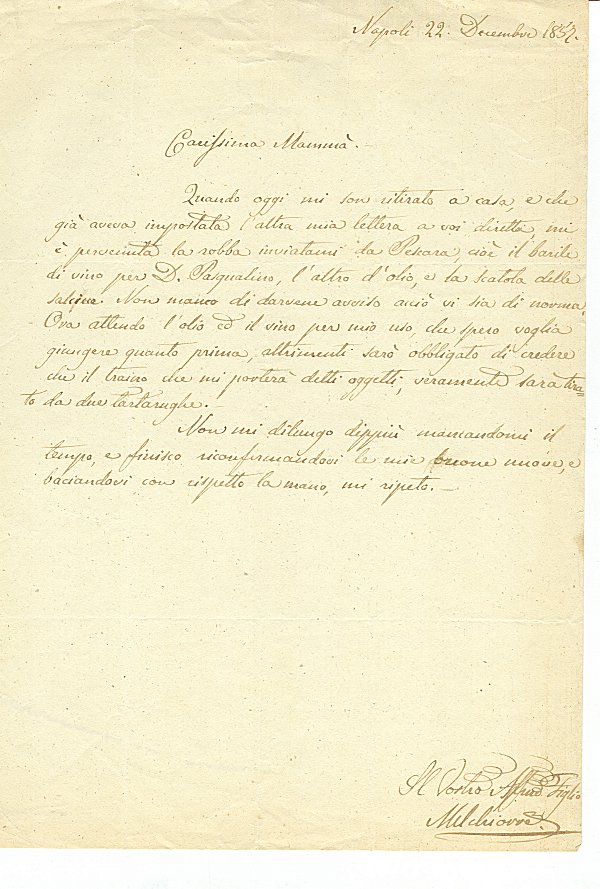 Napoli 22. Decembre 1857.
Carissima Mammà.
Quando oggi mi son ritirato a casa, e che
già aveva impostata l'altra mia lettera a voi diretta, mi
è pervenuta la robba inviatami da Pescara, cioè il barile
di vino per D. Pasqualino, l'altro d'olio, e la scatola delle
salcicce. Non manco di darvene avviso acciò vi sia di norma.
Ora attendo l'olio ed il vino per mio uso, che spero voglia
giungere quanto prima, altrimenti sarò obbligato di credere
che il traino che mi porterà detti oggetti, veramente sarà tira=
to da due tartarughe.
Non mi dilungo dippiù mancandomi il
tempo, e finisco riconfermandovi le mie buone nuove, e
baciandovi con rispetto la mano, mi ripeto. —
Il Vostro Affmo Figlio
Melchiorre